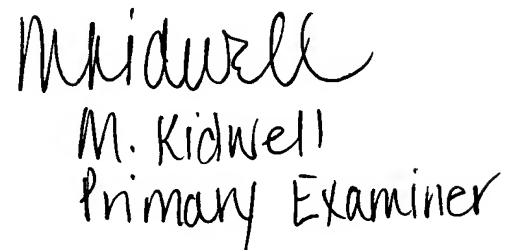 MKidwell
M. Kidwell
Primary Examiner